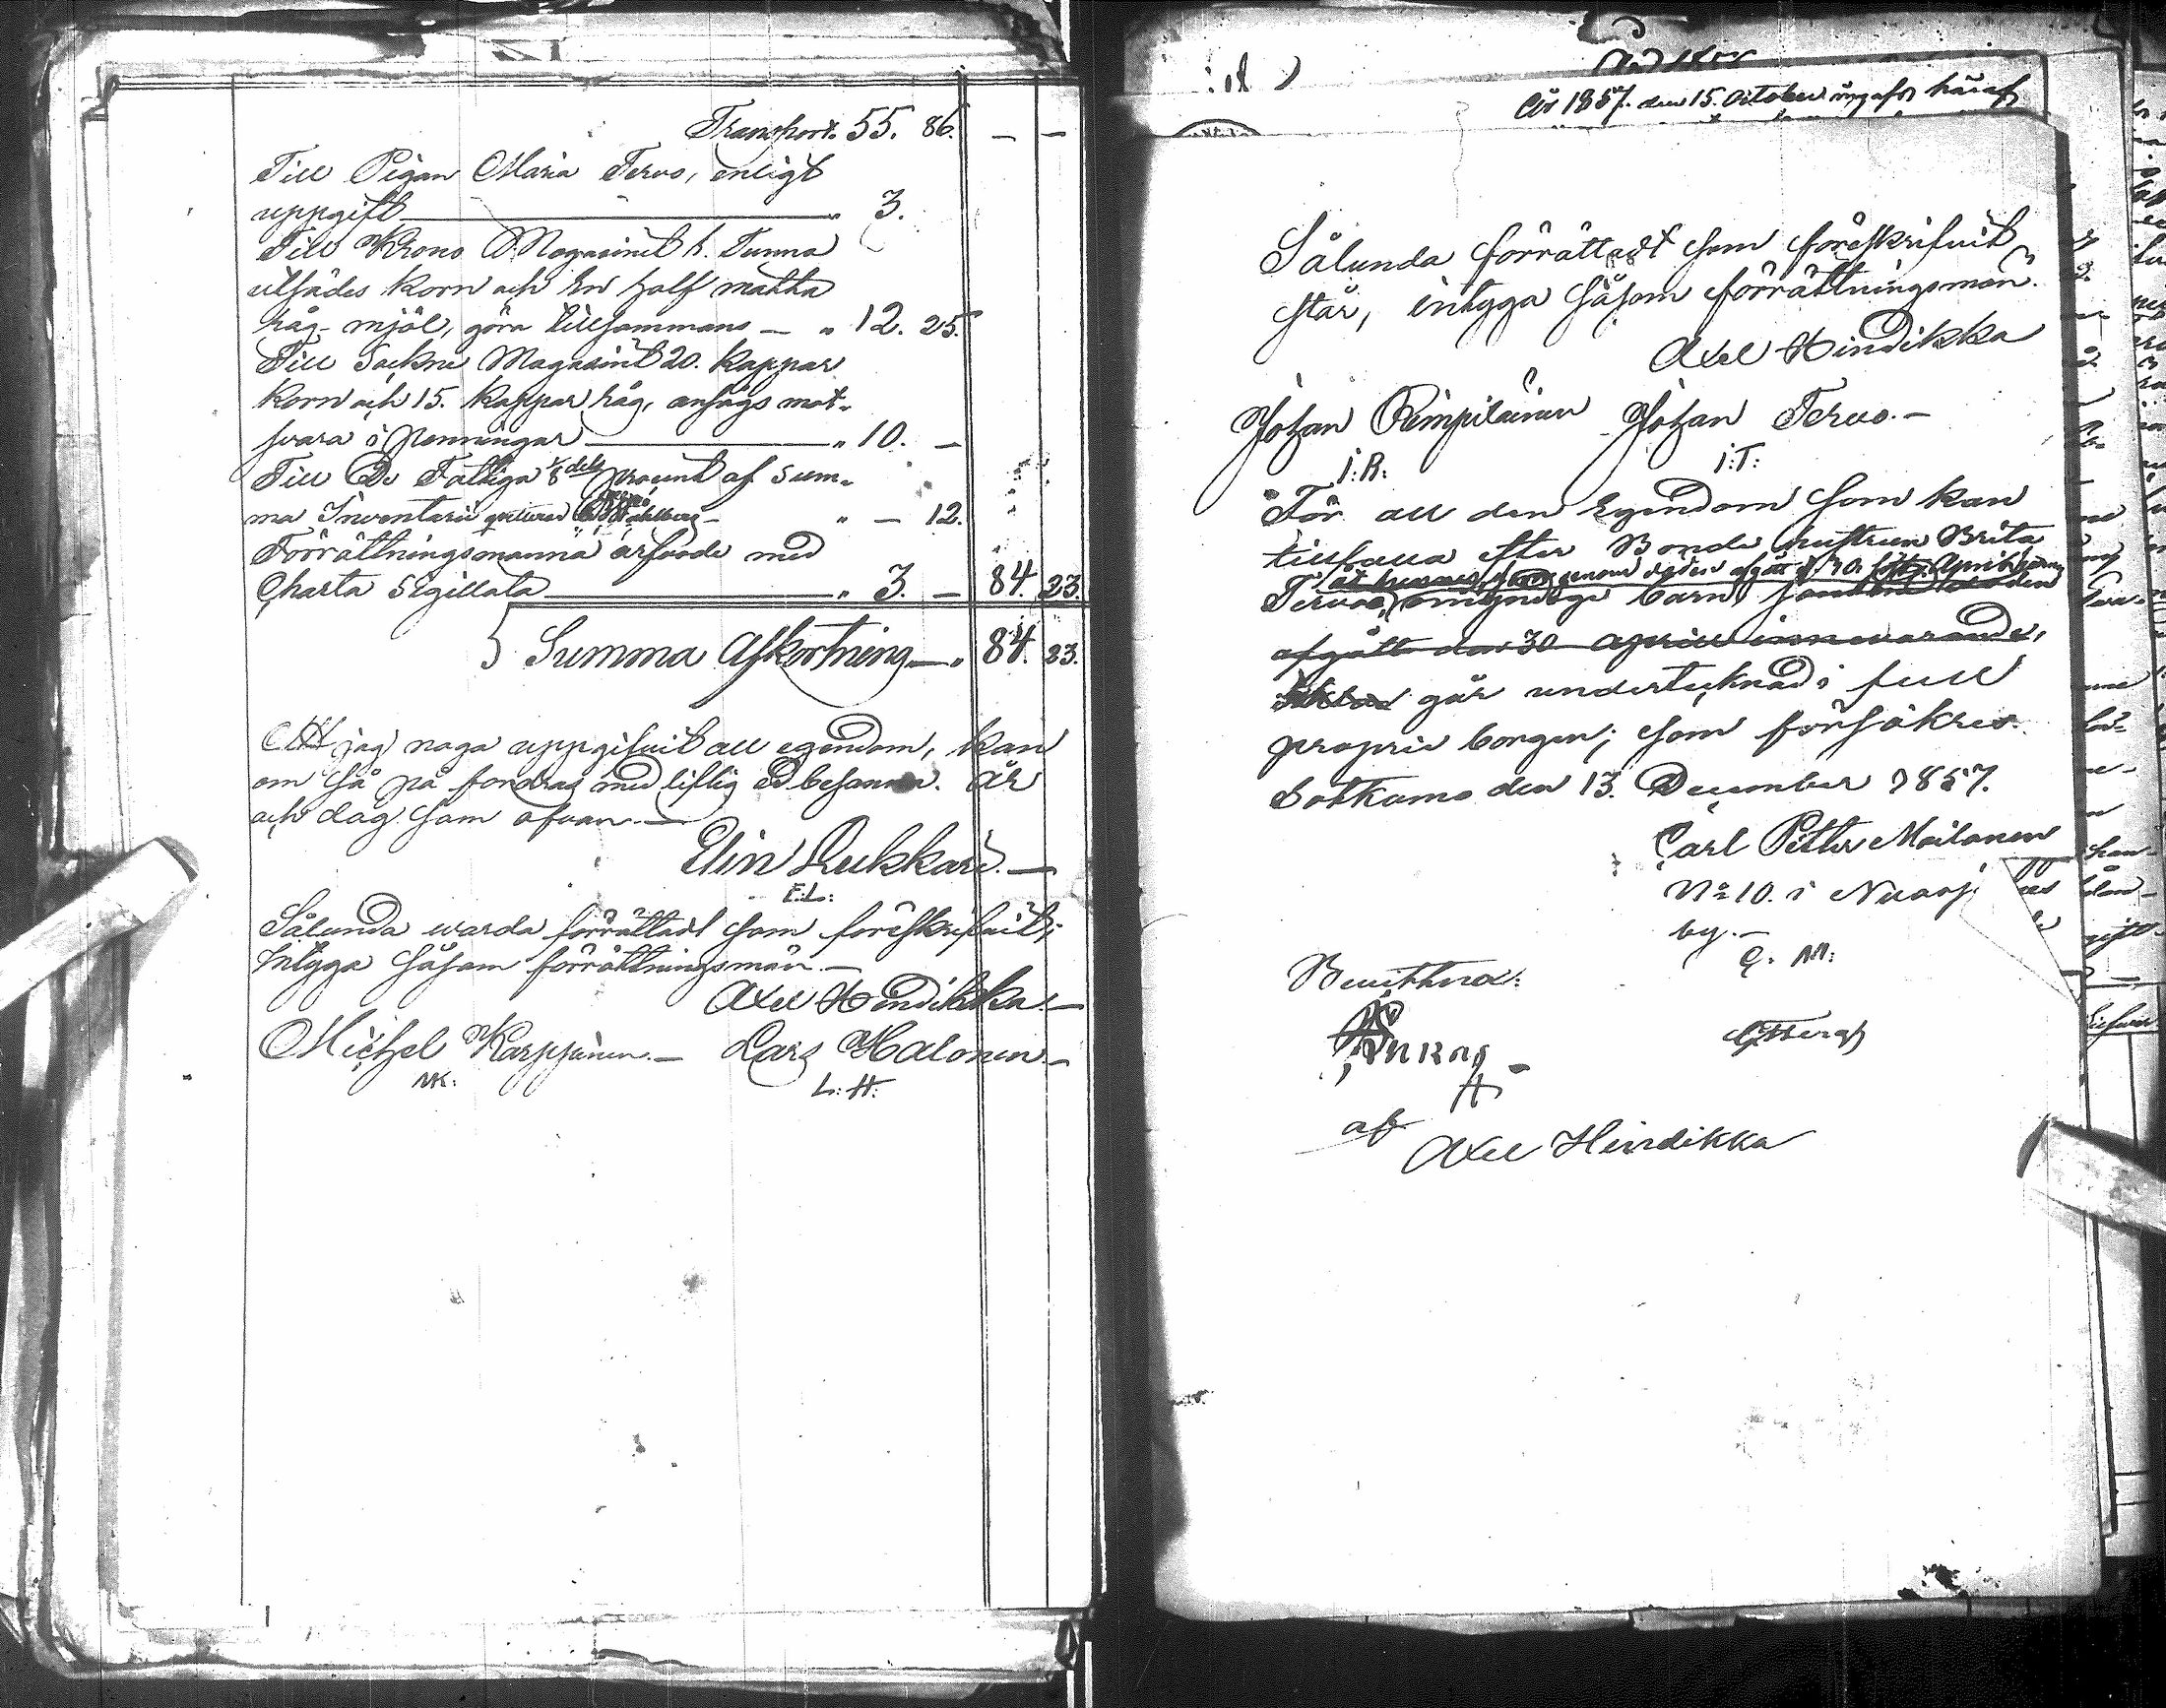 Transport. 55. 86. — —
Till Pigan Maria Tervo, enligt
uppgift — " 3.
Till Krono Magasinet ½. Tunna
utsädes korn och En half matta
råg-mjöl, göra tillsammans — " 12. 25.
Till Sockne Magasinet 20. kappar
korn och 15. kappar råg, ansågs mot-
svara i Penningar — " 10. —
Till De Fattiga 1/8 dels procent af Sum-
ma Inventarii — " — 12.
Förrättningsmanna arfvode med
Charta Sigillata — " 3. — 84. 23.
Summa Afkortning — " 84. 23.
Att jag noga uppgifvit all egendom, kan
om så på fordras med liflig ed besanna. År
och dag som ofvan. —
Elin Lukkari. —
E: L:
Sålunda warda förrättadt som föreskrifvit;
Intyga såsom förrättningsmän. —
Axel Hendikka. —
Michel Karppinen. — Lars Halonen. —
M K: L: H:
År 1857. den 15. October häraf
Sålunda förrättadt som föreskrifvit
står, intyga såsom förrättningsmän.
Axel Hindikka
Johan Pimpiläinen Johan Tervo. —
J: R: J: T:
För all den Egendom som kan
tillfalla efter Bonde hustrun Brita
åt hennes genom döden afgått d. 30. April
Tervos, omyndiga barn,
afgått den 30 April innevarande,
går undertecknad i full
proprie borgen; som försäkres.
Sotkamo den 13. December 1857.
Carl Petter Moilanen
No 10. i Nuasj
by. —
C. M:
Bevittna:
af
Axel Hindikka